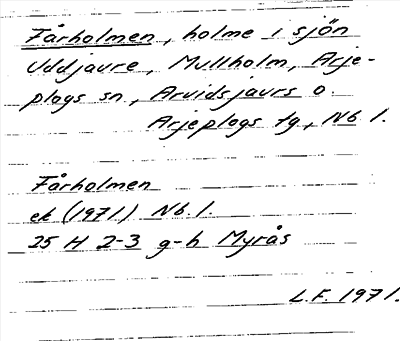 Fårholmen, holme i sjön
Uddjaure, Mullholm, Arje-
plogs sn, Arvidsjaurs o.
Arjeplogs tg, Nb l.
Fårholmen
ek (1971) Nb.l.
25 H 2-3 g-h Myrås
L.F. 1971.